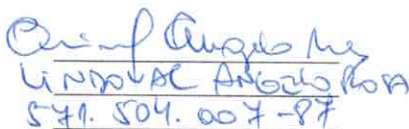 Angelo
LINDOVAL ANGELO ROSA
571.504.007-87